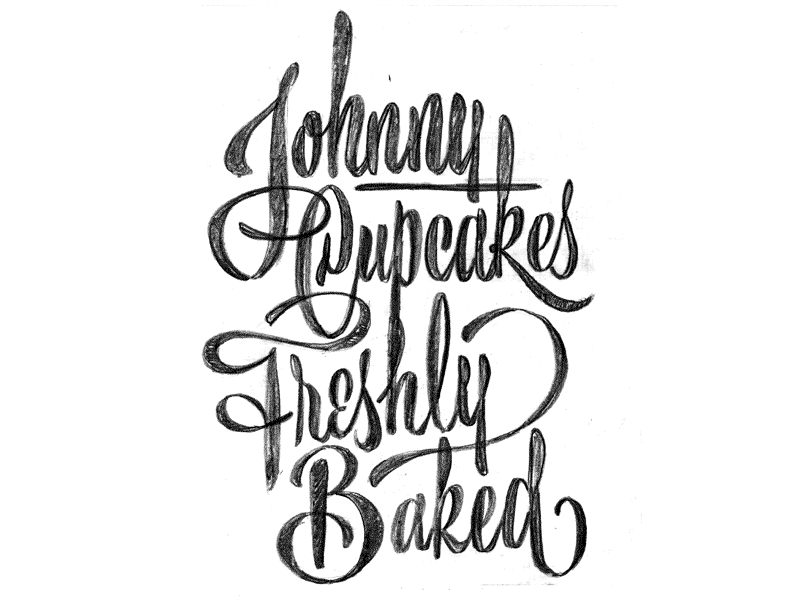 Johnny
Cupcakes
Freshly
Baked